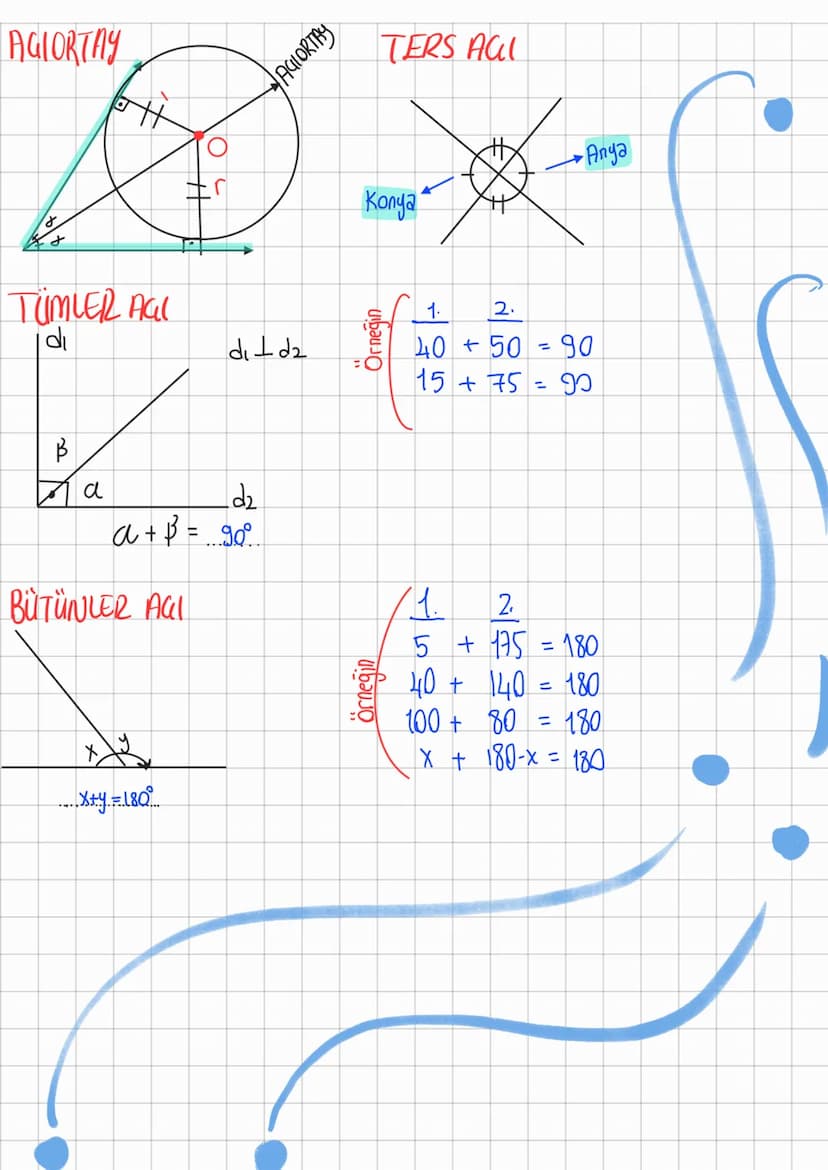 AÇIORTAY
AÇIORTAY
r
O
r
α
α
TERS AÇI
Anya
Konya
TÜMLER AÇI
d1
d1 ⊥ d2
β
α
d2
α + β = ...90°..
Örneğin
1. 2.
40 + 50 = 90
15 + 75 = 90
BÜTÜNLER AÇI
x y
....x+y.=.180°..
Örneğin
1. 2.
5 + 175 = 180
40 + 140 = 180
100 + 80 = 180
x + 180-x = 180